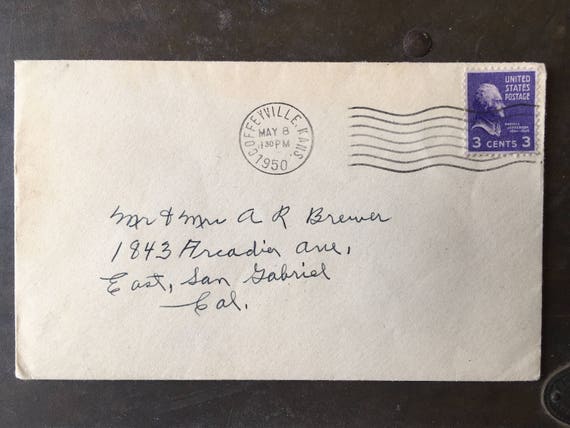 COFFEYVILLE, KANS.
MAY 8
1 30 PM
1950
UNITED
STATES
POSTAGE
3 CENTS 3
Mr & Mrs A R Brewer
1843 Arcadia Ave,
East, San Gabriel
Cal.